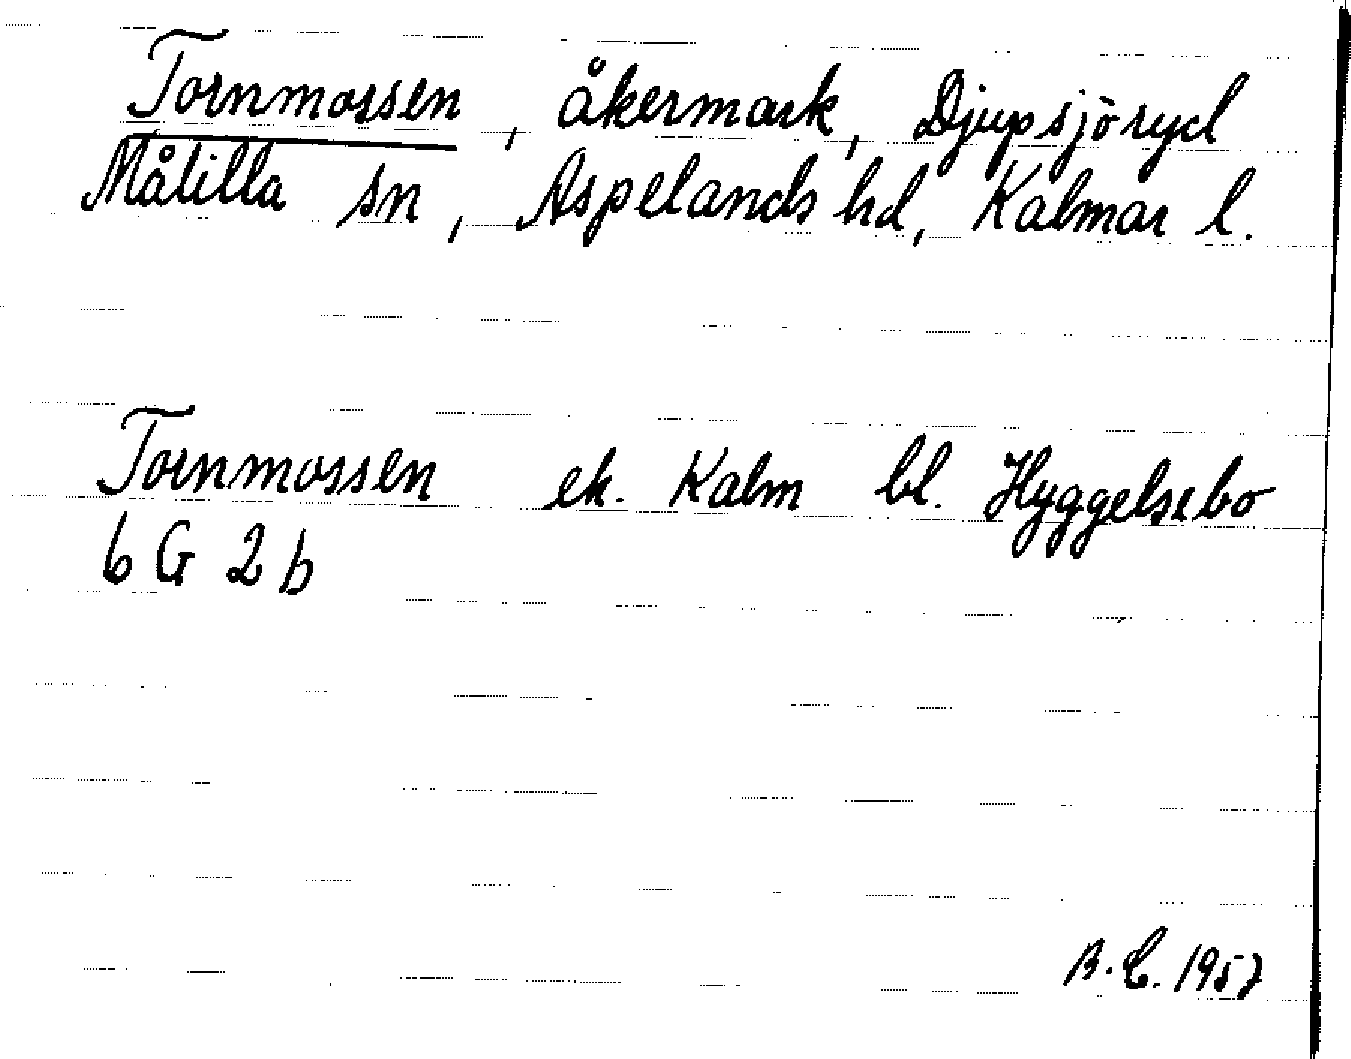 Tornmossen, åkermark, Djupsjöryd
Målilla sn, Aspelands hd, Kalmar l.
Tornmossen ek. Kalm bl. Hyggelsebo
6 G 2 b
B. C. 1957